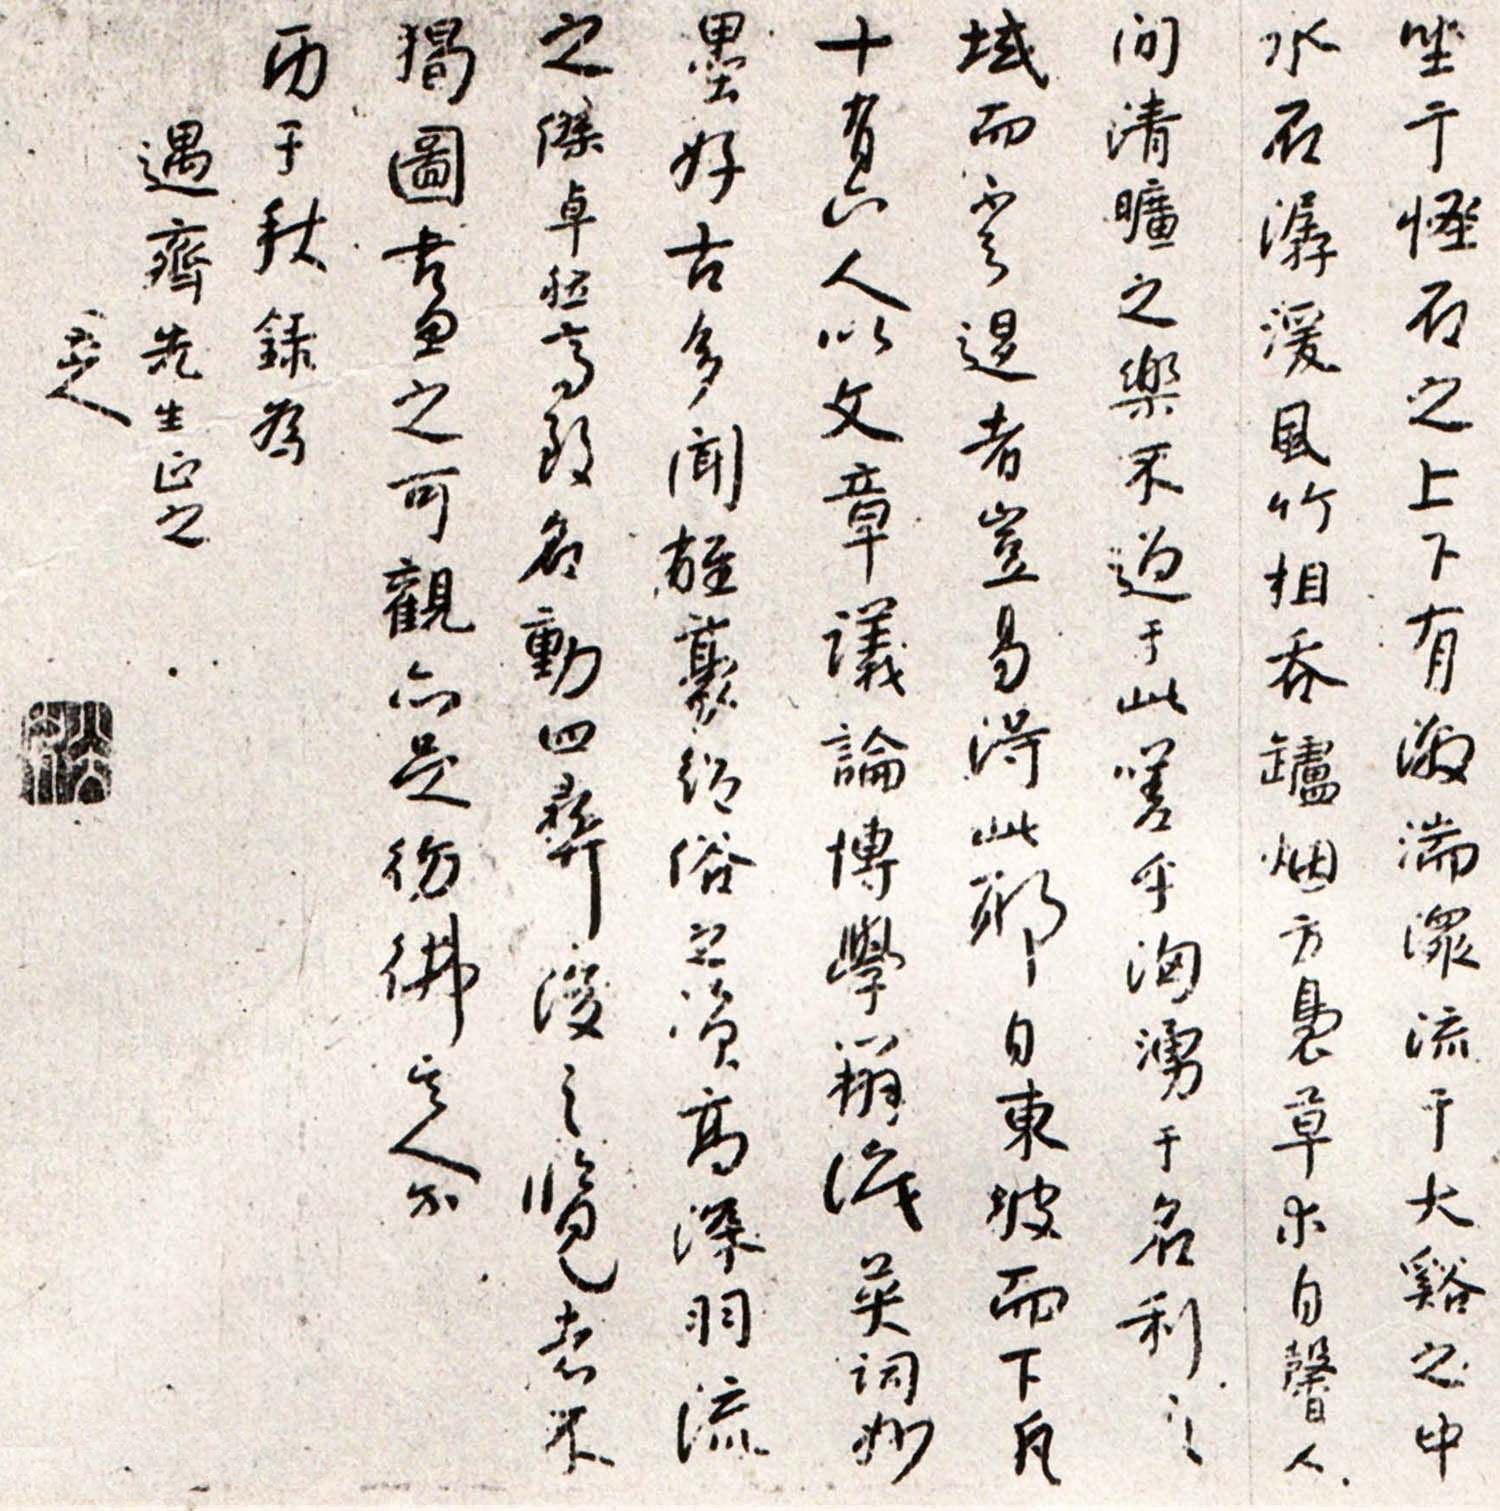 坐于怪石之上下有激湍潀流于大谿之中
水石潺湲風竹相吞爐烟方裊草木自馨人
间清曠之樂不過于此嗟乎洶湧于名利之
域而不知退者豈易得此耶自東坡而下凡
十有六人以文章議論博學辨識英詞妙
墨好古多聞雄豪絕俗之資高深羽流
之傑卓然高致名動四夷後之覽者不
獨圖畫之可觀亦足彷彿其人尔
丙子秋錄為
遇齊先生正之
八大山人